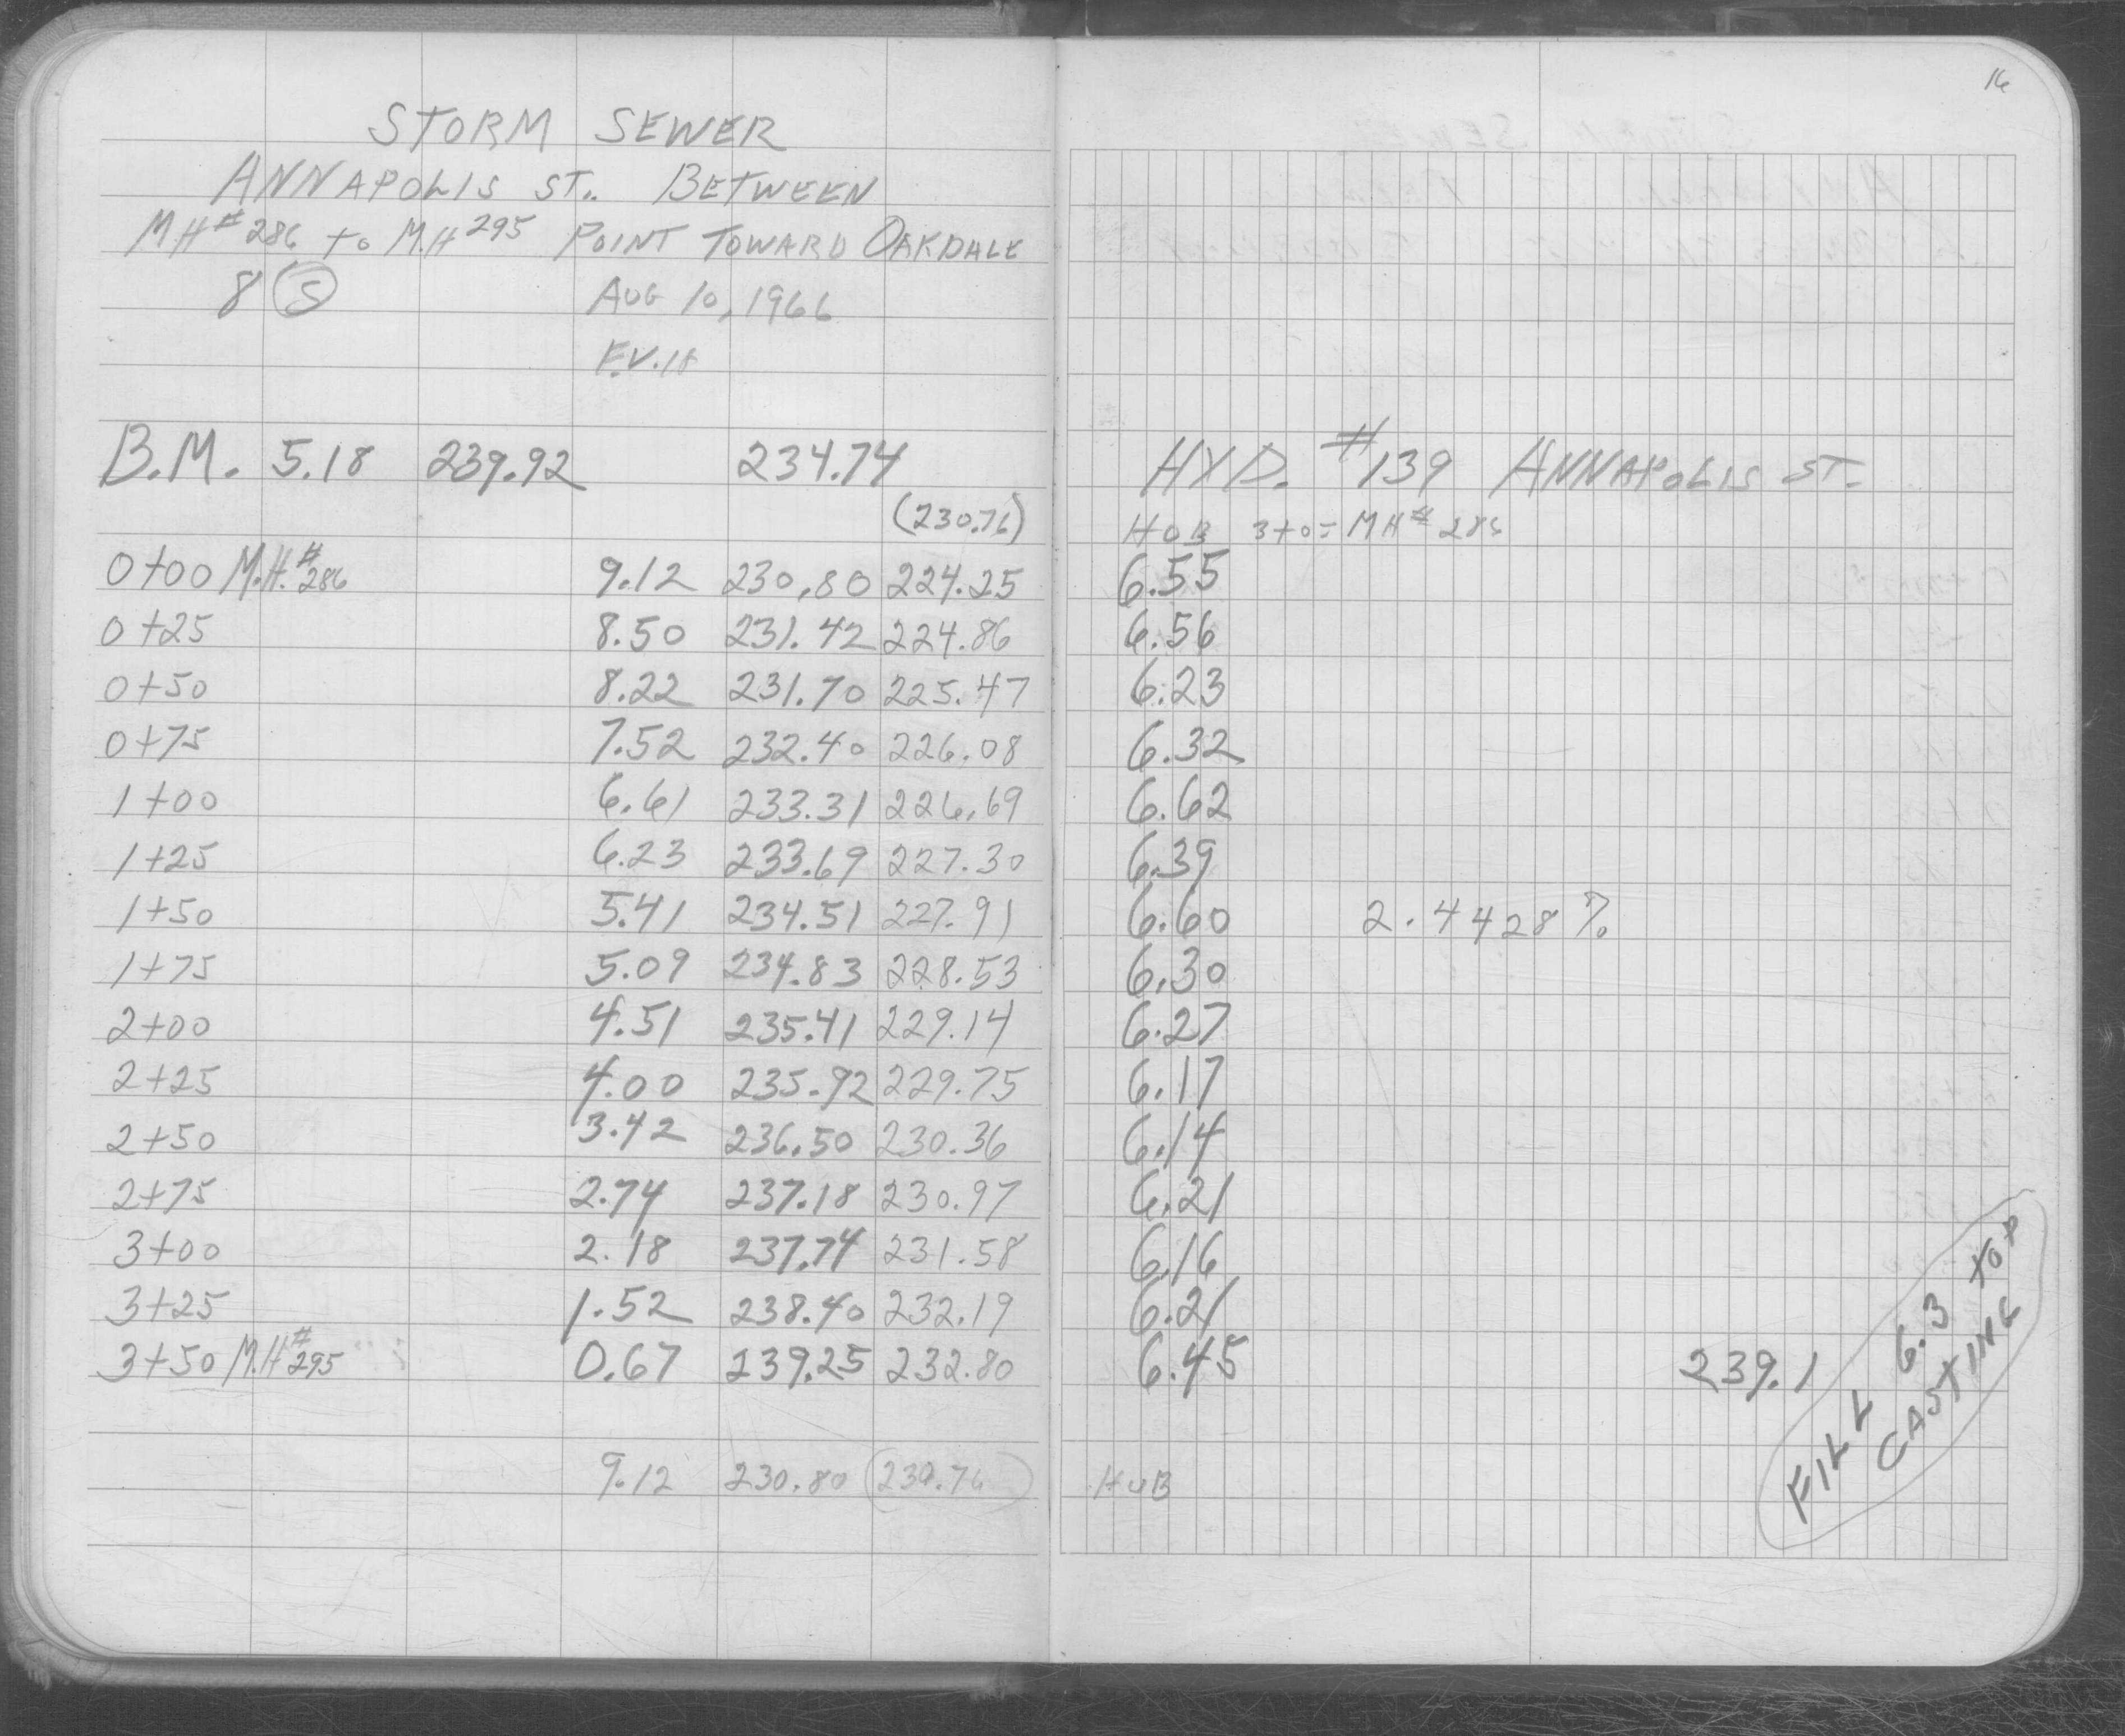 16
STORM SEWER
ANNAPOLIS ST. BETWEEN
MH# 286 to M.H 295 POINT TOWARD OAKDALE
8 S AUG 10, 1966
B.M. 5.18 239.92 234.74 HYD. #139 ANNAPOLIS ST.
(230.76) HUB 3+0= MH# 286
0+00 M.H.# 286 9.12 230.80 224.25 6.55
0+25 8.50 231.42 224.86 6.56
0+50 8.22 231.70 225.47 6.23
0+75 7.52 232.40 226.08 6.32
1+00 6.61 233.31 226.69 6.62
1+25 6.23 233.69 227.30 6.39
1+50 5.41 234.51 227.91 6.60 2.4428%
1+75 5.09 234.83 228.53 6.30
2+00 4.51 235.41 229.14 6.27
2+25 4.00 235.92 229.75 6.17
2+50 3.42 236.50 230.36 6.14
2+75 2.74 237.18 230.97 6.21
3+00 2.18 237.74 231.58 6.16
3+25 1.52 238.40 232.19 6.21
3+50 M.H# 295 0.67 239.25 232.80 6.45 239.1
FILL 6.3 TOP
CASTING
9.12 230.80 230.76 HUB